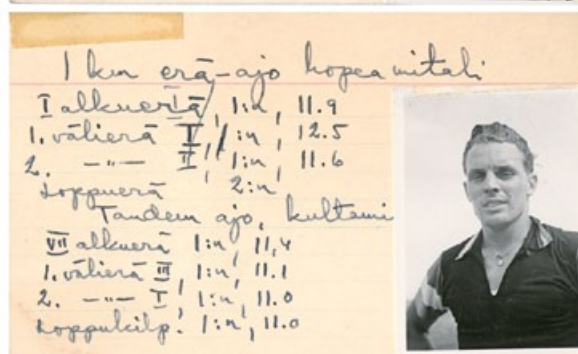 1 km erä-ajo hopeamitali
I alkuerä I, 1:n, 11.9
1. välierä I, 1:n, 12.5
2. -"- II, 1:n, 11.6
Loppuerä 2:n,
Tandem ajo, kultami
VII alkuerä 1:n, 11,4
1. välierä III, 1:n, 11.1
2. -"- I, 1:n, 11.0
Loppukilp. 1:n, 11.0